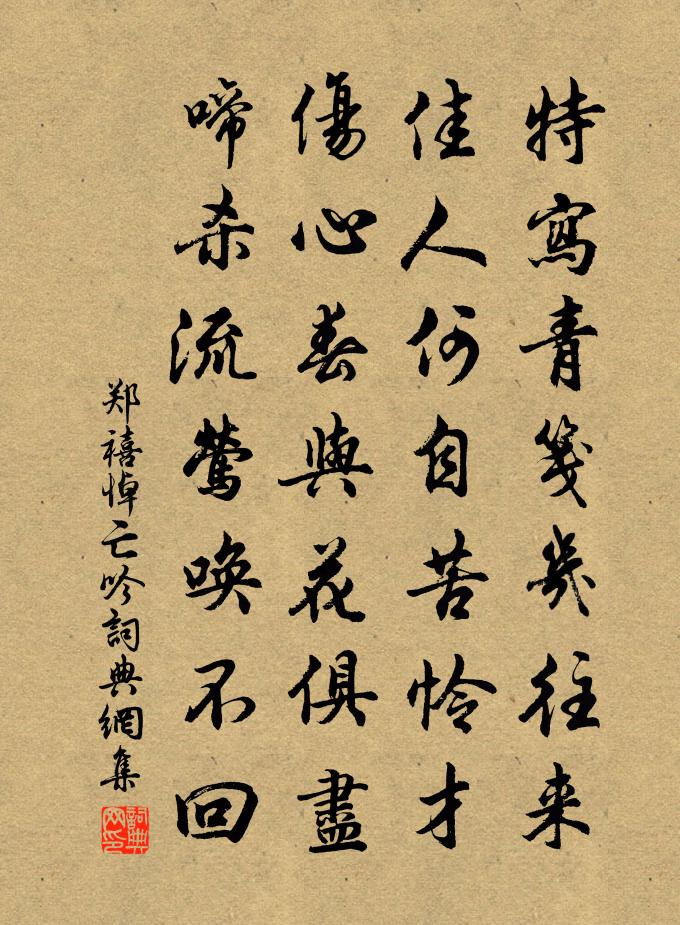 特寫青箋幾往来
佳人何自苦怜才
傷心春與花俱盡
啼杀流鶯唤不回
郑禧悼亡吟詞典網集
詞典網印